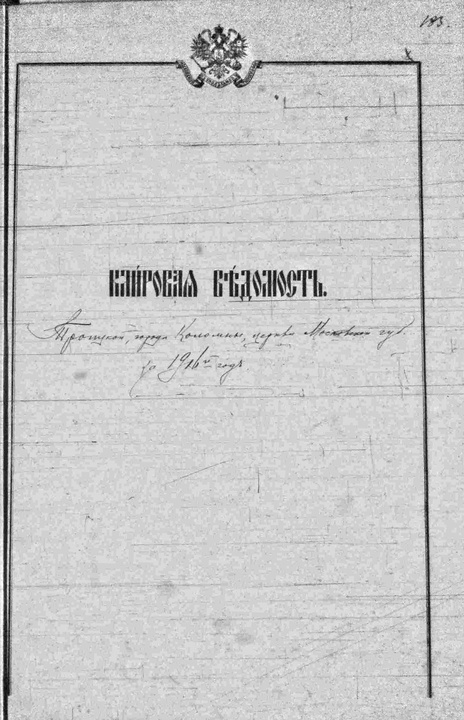 183.
КЛИ́РОВАЯ ВѢ́ДОМОСТЬ.
Троицкой, города Коломны, церкви Московской губ.
за 1916й годъ